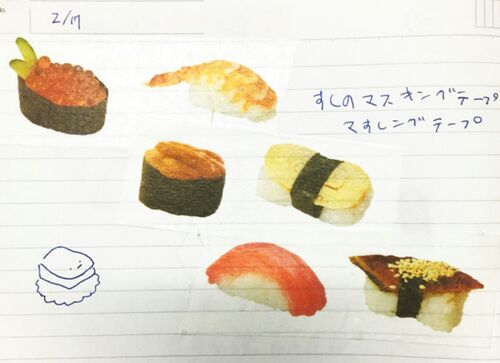 2/17
すしのマスキングテープ
マすしングテープ